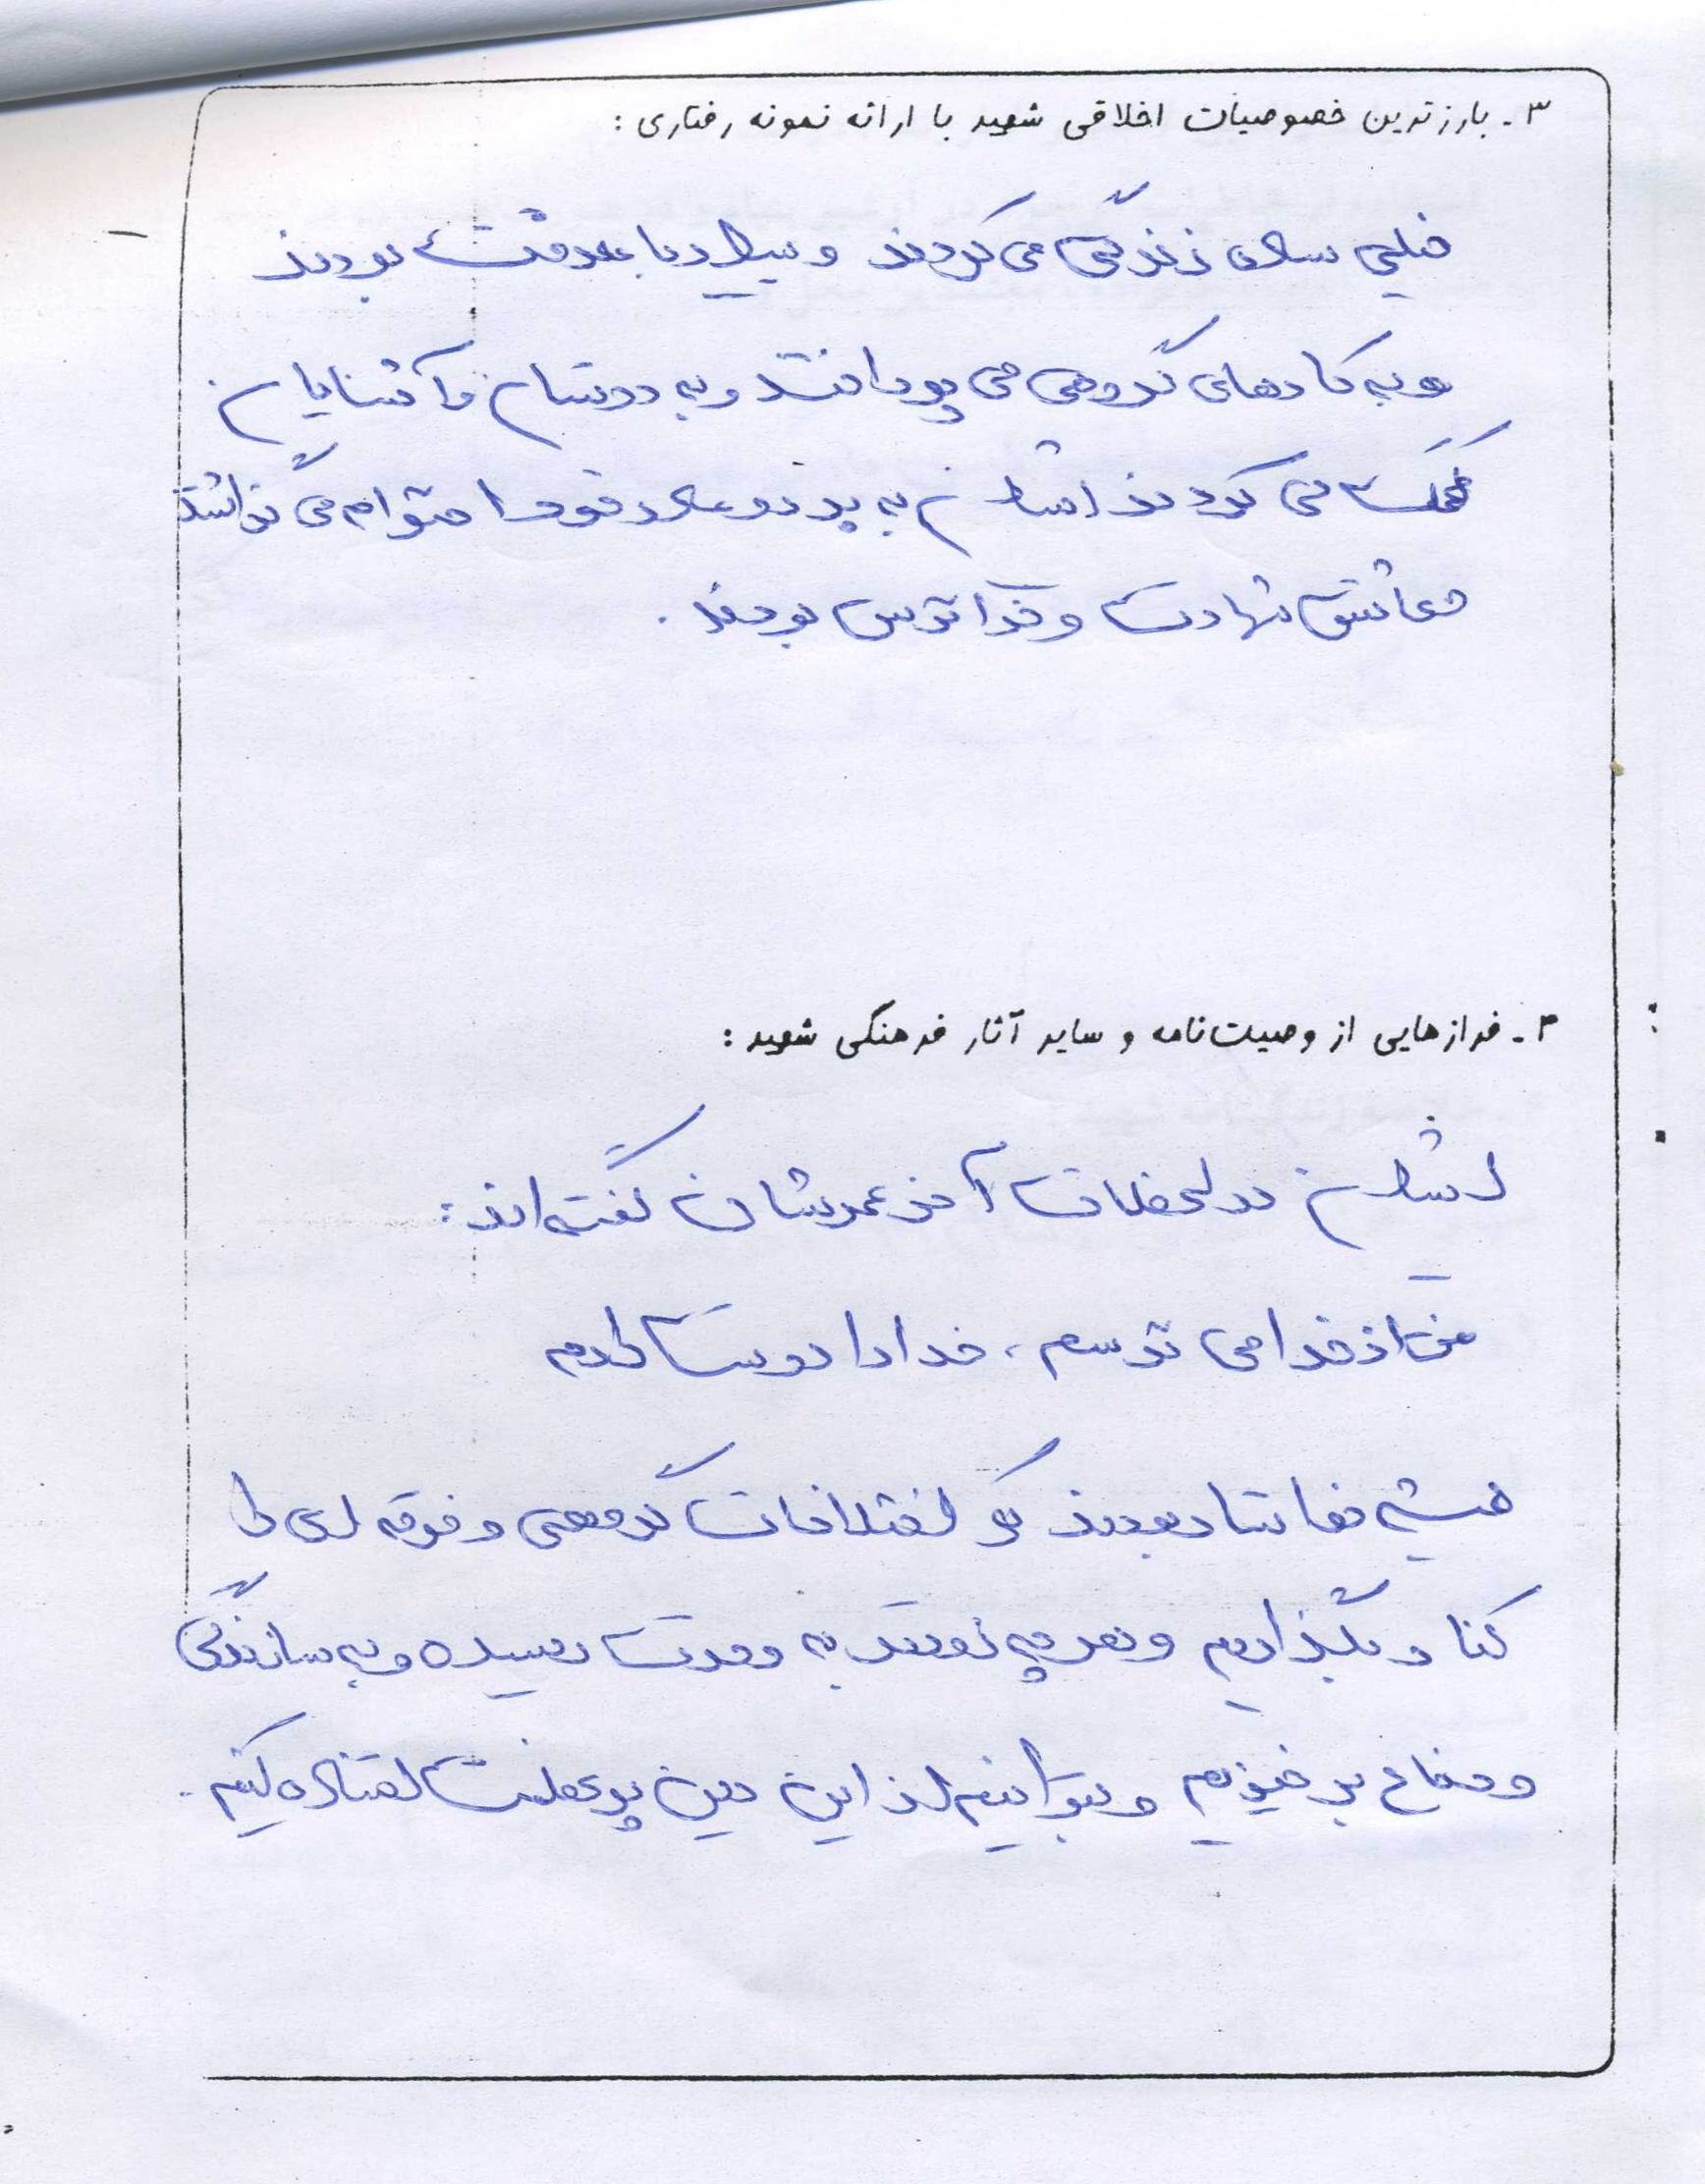 ۳ - بارزترین خصوصیات اخلاقی شهید با ارائه نمونه رفتاری :
خیلی ساده زندگی می کردند و بسیار با دقت بودند
و به کارهای گروهی می پرداختند و به دوستان و آشنایان
کمک می کردند ایشان به پدر و مادر خود احترام می گذاشتند
عاشق شهادت و خداترس بودند .
۴ - فرازهایی از وصیت‌نامه و سایر آثار فرهنگی شهید :
ایشان در لحظات آخر عمرشان گفته اند :
من از خدا می ترسم ، خدا را دوست دارم
همیشه می گفتند اختلافات گروهی و فرقه ای را
کنار بگذاریم و هر چه زودتر به وحدت رسیده و به سازندگی
و دفاع برخیزیم و بتوانیم از این دین پر عظمت استفاده کنیم .